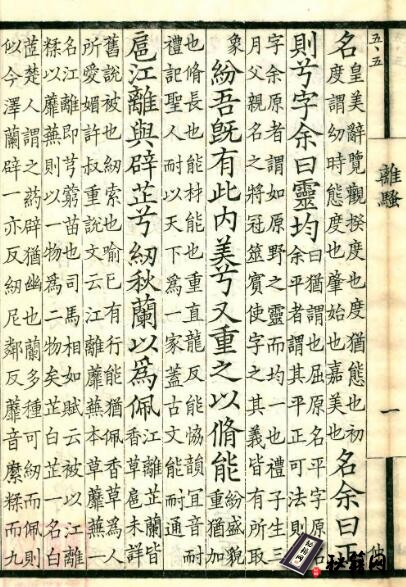 五、五
離騷
一
名皇美辭覽觀揆度也度猶態也初
度謂幼時態度也肇始也嘉美也名余曰正
則兮字余曰靈均曰猶謂也屈原名平字原名
余平者謂其平正可法則
字余原者謂如原野之靈而均一也禮子生三
月父親名之將冠筮賓使字之其義皆有所取
象紛吾旣有此內美兮又重之以脩能紛盛貌
重猶加
也脩長也能材能也重直龍反能協韻宜音耐
禮記聖人耐以天下爲一家蓋古文能耐通
扈江離與辟芷兮紉秋蘭以爲佩江離芷蘭皆
香草扈未詳
舊說被也紉索也喻已有行能猶佩香草爲人
所愛媚許叔重說文云江離蘼蕪本草蘼蕪一
名江離即芎藭苗也司馬相如賦云被以江離
糅以蘼蕪則以一物爲二物矣芷白芷一名白
茝楚人謂之葯辟猶幽也蘭多種可紉而佩則
似今澤蘭辟一亦反紉尼鄰反蘼音縻糅而九